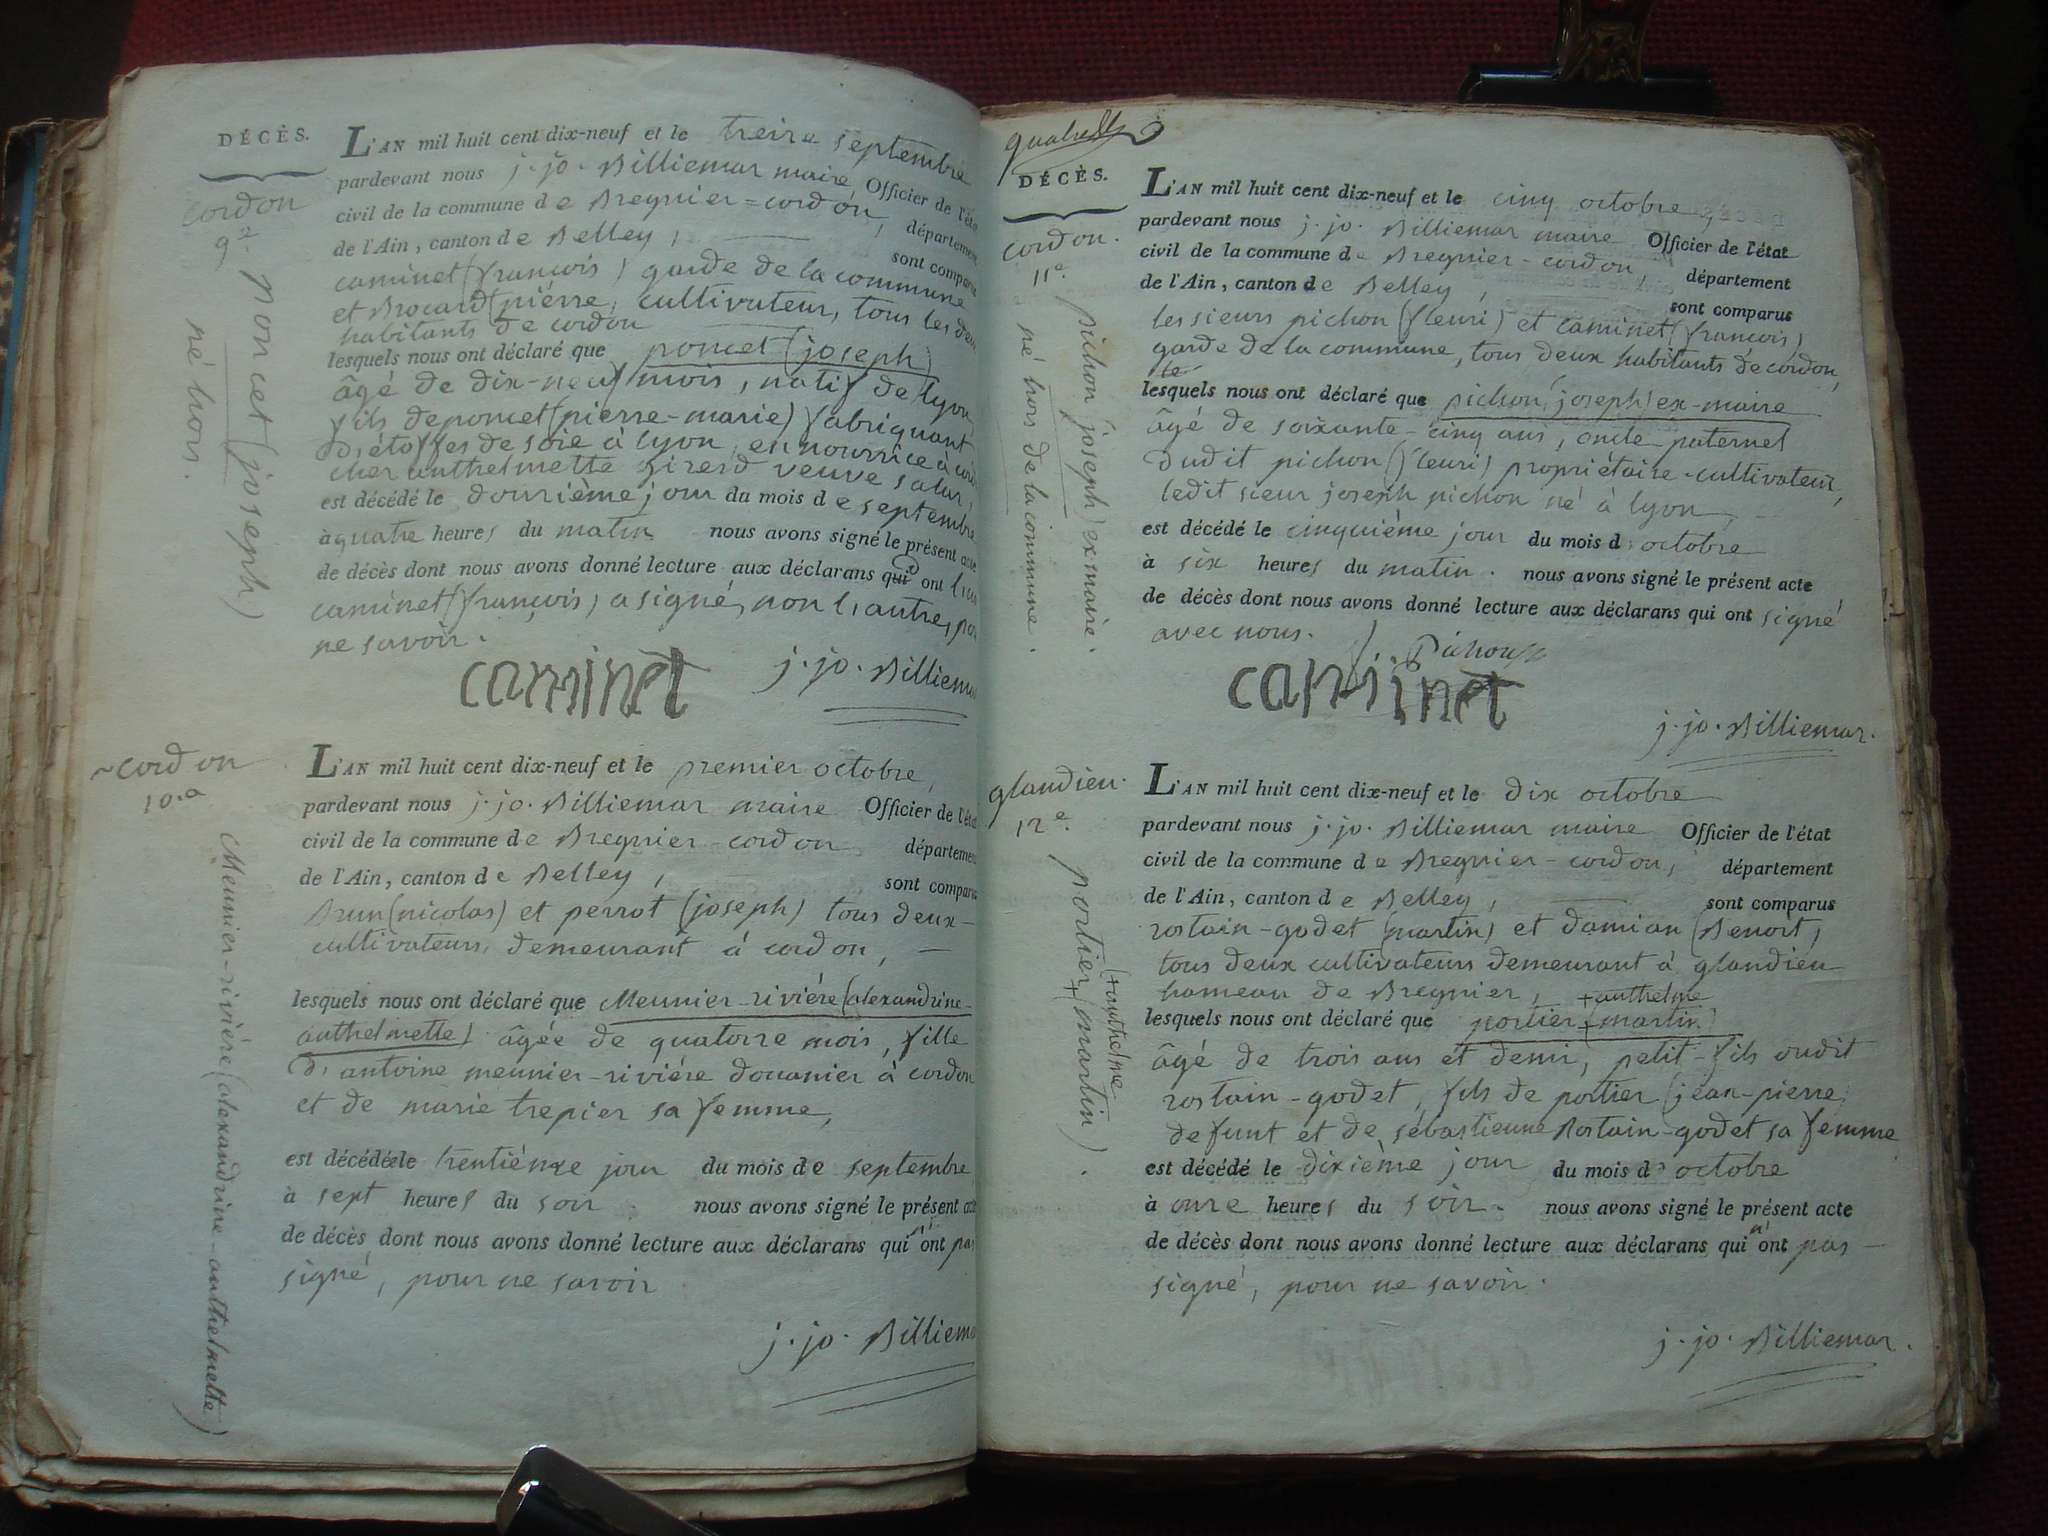 DÉCÈS.
cordon
9.e
poncet (joseph)
né hors.
L'AN mil huit cent dix-neuf et le treize septembre
pardevant nous j. jo. Billiemaz maire Officier de l'état
civil de la commune de Bregnier-cordon, département
de l'Ain, canton de Belley, sont comparus
caminet (françois) garde de la commune
et Brocard (pierre, cultivateur, tous les deux
habitants de cordon
lesquels nous ont déclaré que poncet (joseph)
âgé de dix-neuf mois, natif de lyon
fils de poncet (pierre-marie) fabriquant
d'étoffes de soie à lyon, en nourrice à
chez anthelmette veuve
est décédé le douzième jour du mois de septembre
à quatre heures du matin nous avons signé le présent acte
de décès dont nous avons donné lecture aux déclarans qui ont
caminet (françois) a signé, non l'autre, pour
ne savoir.
caminet j. jo. Billiemaz
cordon
10.e
Meunier-rivière (alexandrine-anthelmette)
L'AN mil huit cent dix-neuf et le premier octobre,
pardevant nous j. jo. Billiemaz maire Officier de l'état
civil de la commune de Bregnier-cordon département
de l'Ain, canton de Belley, sont comparus
Brun (nicolas) et perrot (joseph) tous deux
cultivateurs, demeurant à cordon,
lesquels nous ont déclaré que Meunier-rivière (alexandrine-
anthelmette) âgée de quatorze mois, fille
d'antoine meunier-rivière douanier à cordon
et de marie trepier sa femme,
est décédée le trentième jour du mois de septembre
à sept heures du soir. nous avons signé le présent acte
de décès dont nous avons donné lecture aux déclarans qui n'ont pas
signé, pour ne savoir
j. jo. Billiemaz
DÉCÈS.
cordon.
11.e
pichon (joseph) exmaire.
né hors de la commune.
L'AN mil huit cent dix-neuf et le cinq octobre,
pardevant nous j. jo. Billiemaz maire Officier de l'état
civil de la commune de Bregnier-cordon, département
de l'Ain, canton de Belley, sont comparus
les sieurs pichon (fleuri) et caminet (françois)
garde de la commune, tous deux habitants de cordon,
lesquels nous ont déclaré que pichon (joseph) ex-maire
âgé de soixante-cinq ans, oncle paternel
dudit pichon (fleuri) propriétaire-cultivateur,
ledit sieur joseph pichon né à lyon,
est décédé le cinquième jour du mois d'octobre
à six heures du matin. nous avons signé le présent acte
de décès dont nous avons donné lecture aux déclarans qui ont signé
avec nous.
Pichon
caminet
j. jo. Billiemaz.
glandieu.
12.e
portier + (martin).
(+ anthelme
L'AN mil huit cent dix-neuf et le dix octobre
pardevant nous j. jo. Billiemaz maire Officier de l'état
civil de la commune de Bregnier-cordon, département
de l'Ain, canton de Belley, sont comparus
rostain-godet (martin) et damian (Benoit,
tous deux cultivateurs demeurant à glandieu
hameau de Bregnier, + anthelme
lesquels nous ont déclaré que portier + (martin)
âgé de trois ans et demi, petit-fils dudit
rostain-godet, fils de portier (jean-pierre)
defunt et de sébastienne Rostain-godet sa femme
est décédé le dixième jour du mois d'octobre
à onze heures du soir. nous avons signé le présent acte
de décès dont nous avons donné lecture aux déclarans qui n'ont pas
signé, pour ne savoir.
j. jo. Billiemaz.